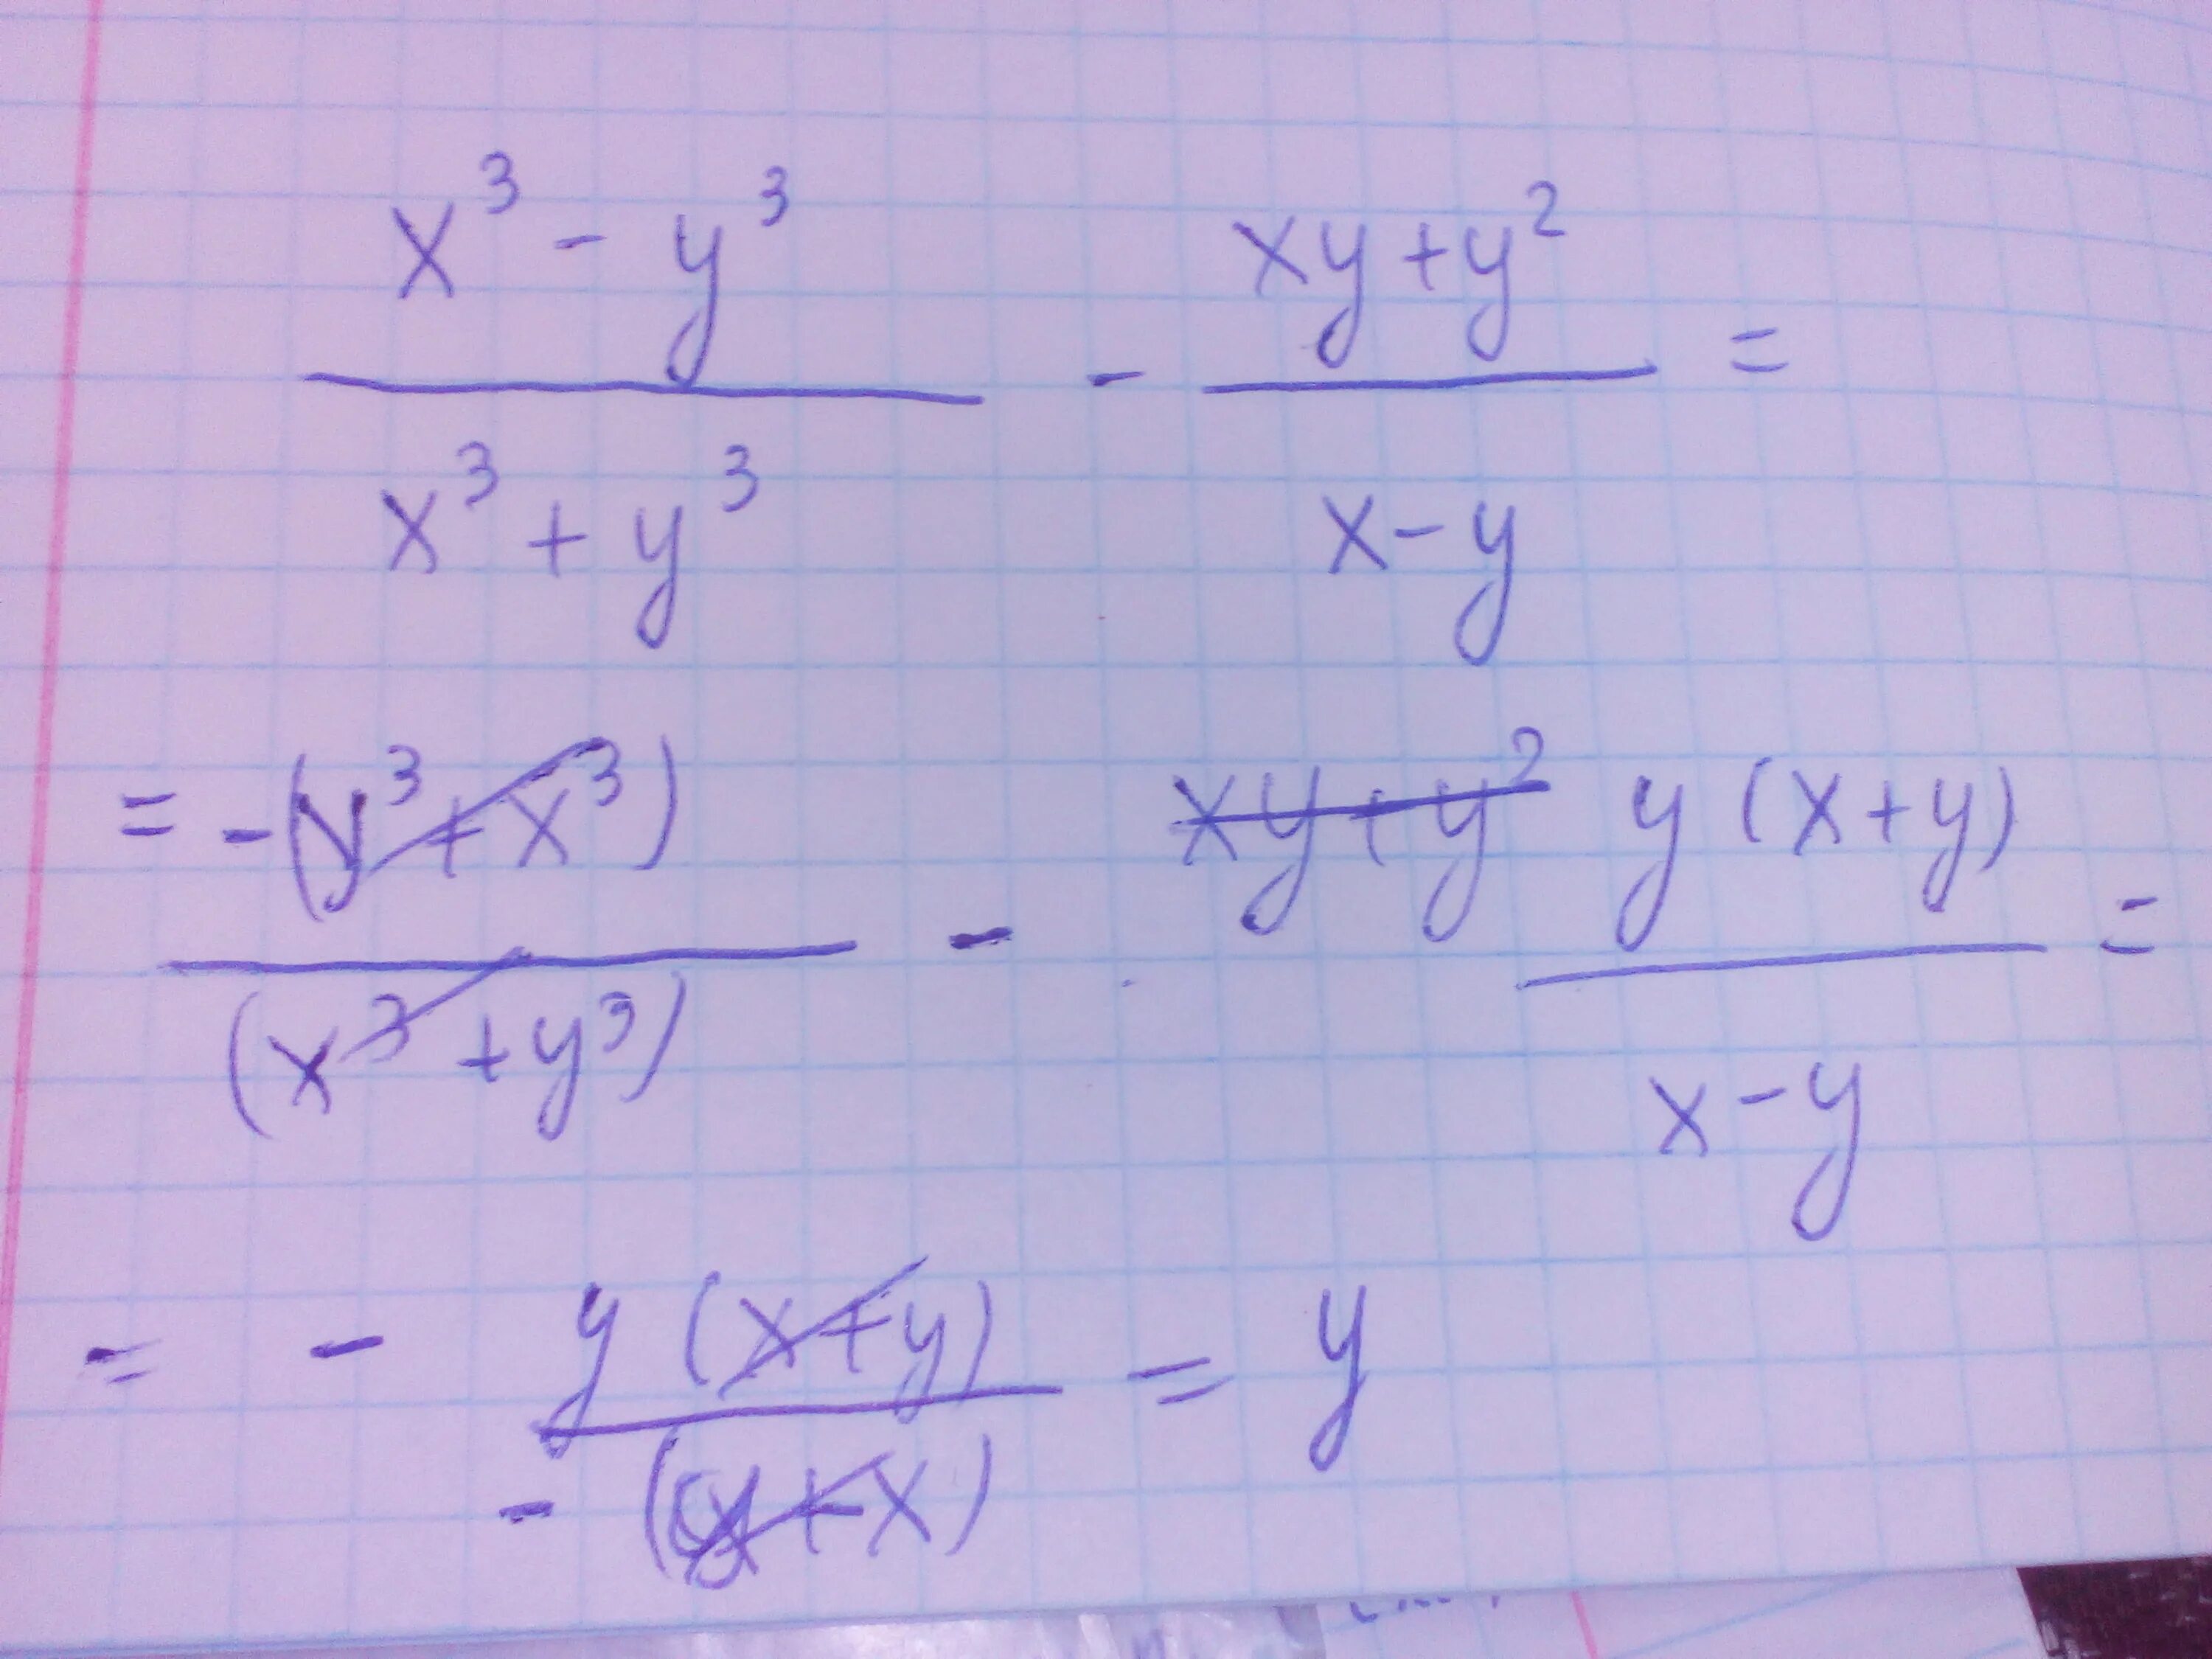 x³ - y³ / x³ + y³ - xy + y² / x - y =
= -(y³ + x³) / (x³ + y³) - xy + y² y (x + y) / x - y =
= - y (x + y) / - (y + x) = y